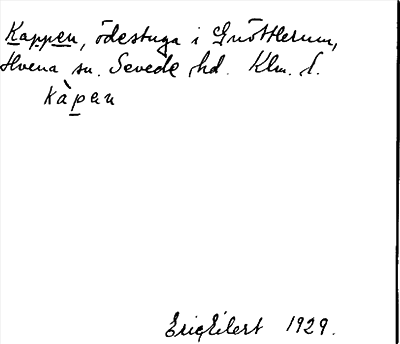 Kappen, ödestuga i Gnöttlerum,
Hvena sn. Sevede hd. Klm. l.
kàpen
Eric Eilert 1929.